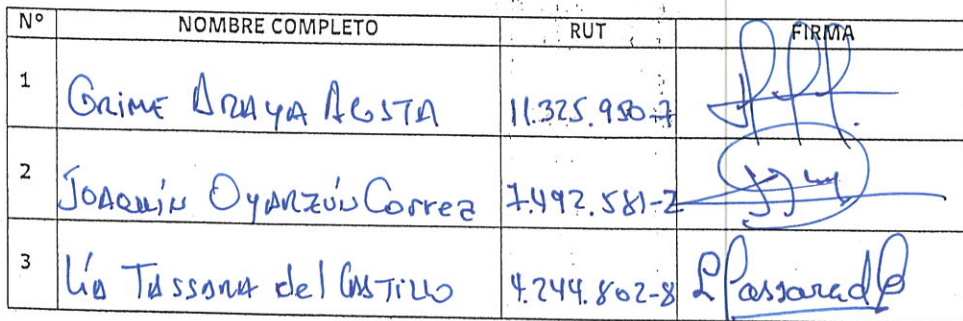 Nº NOMBRE COMPLETO RUT FIRMA
1 Grime Araya Acosta 11.325.950-7
2 Joaquín Oyarzún Correa 7.492.581-2
3 Lía Tassara del Castillo 4.244.802-8